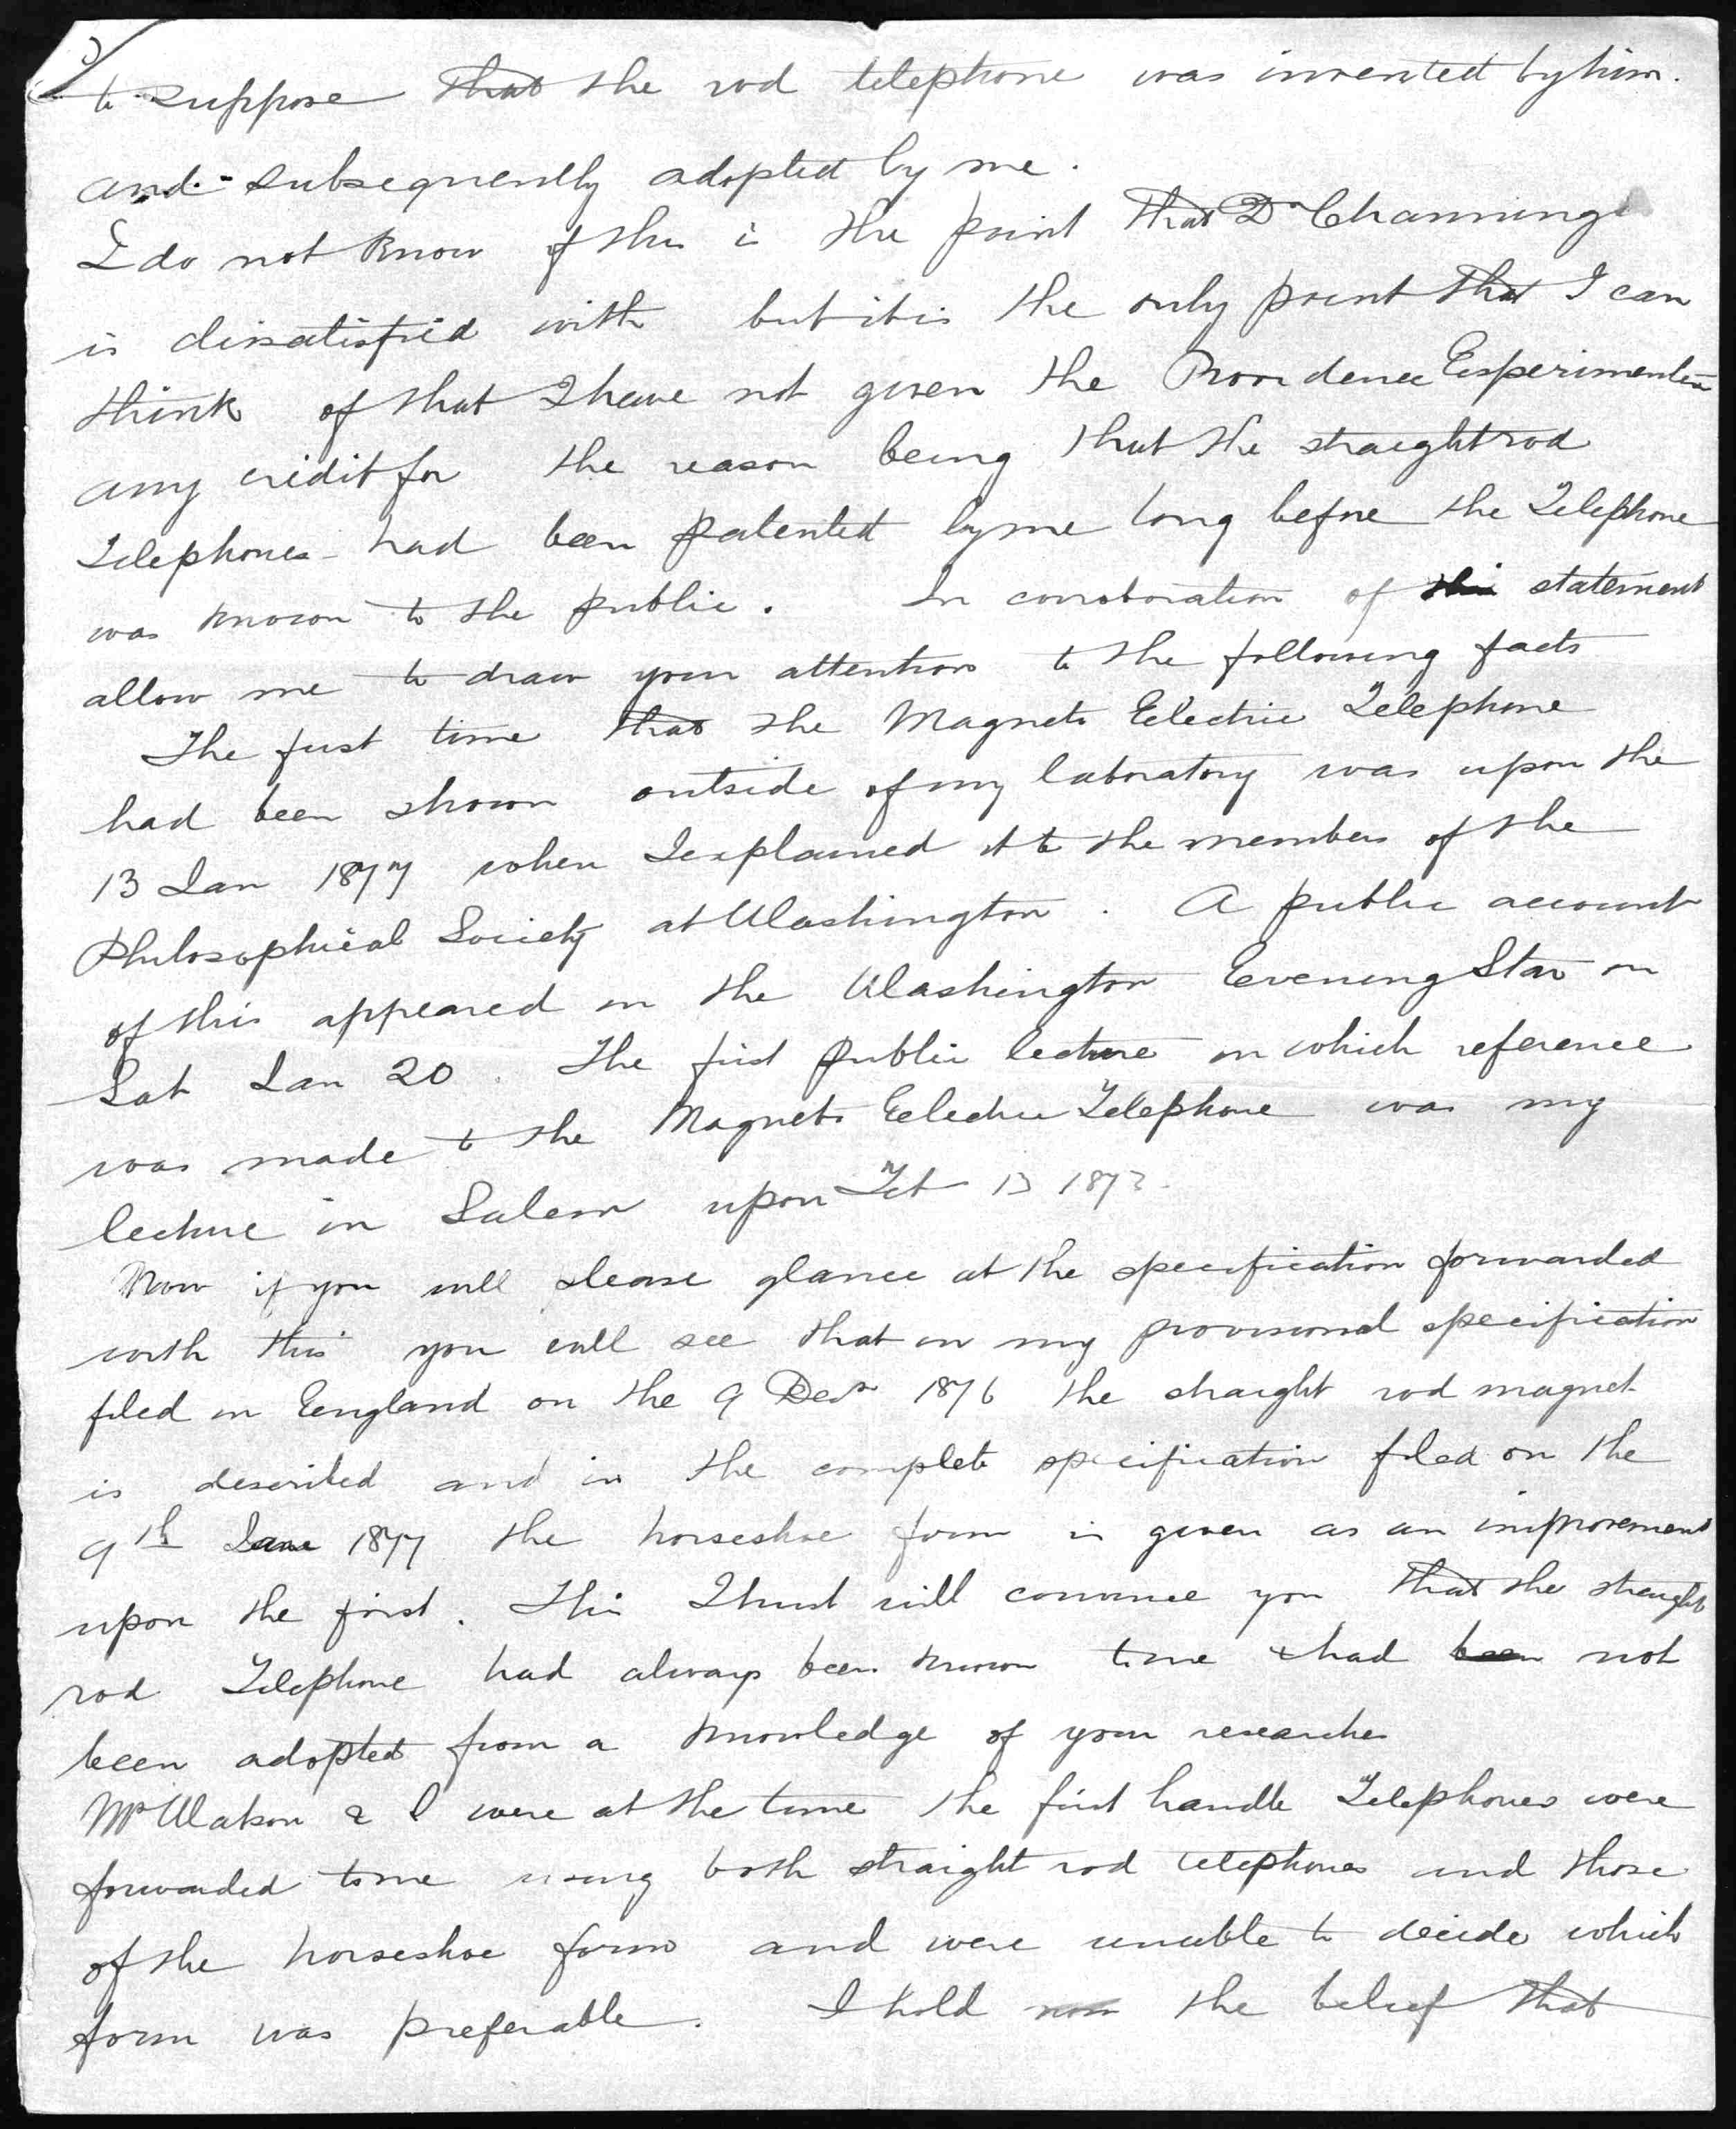 3
to suppose that the rod telephone was invented by him.
and subsequently adopted by me.
I do not know if this is the point that Dr Channing
is dissatisfied with but it is the only point that I can
think of that I have not given the Providence Experimenters
any credit for the reason being that the straight rod
Telephones had been patented by me long before the Telephone
was known to the public. In corroboration of this statement
allow me to draw your attention to the following facts
The first time that the Magneto Electric Telephone
had been shown outside of my laboratory was upon the
13 Jan 1877 when I explained it to the members of the
Philosophical Society at Washington. A public account
of this appeared in the Washington Evening Star on
Sat Jan 20. The first public lecture in which reference
was made to the Magneto Electric Telephone was my
lecture in Salem upon Feb 13 187
Now if you will please glance at the specification forwarded
with this you will see that in my provisional specification
filed in England on the 9 Decr 1876 the straight rod magnet
is described and in the complete specification filed on the
9th June 1877 the horseshoe form is given as an improvement
upon the first. This I trust will convince you that the straight
rod Telephone had always been known to me & had been not
been adopted from a knowledge of your researches
Mr Watson & I were at the time the first handle Telephones were
forwarded to me using both straight rod telephones and those
of the horseshoe form and were unable to decide which
form was preferable. I hold now the belief that